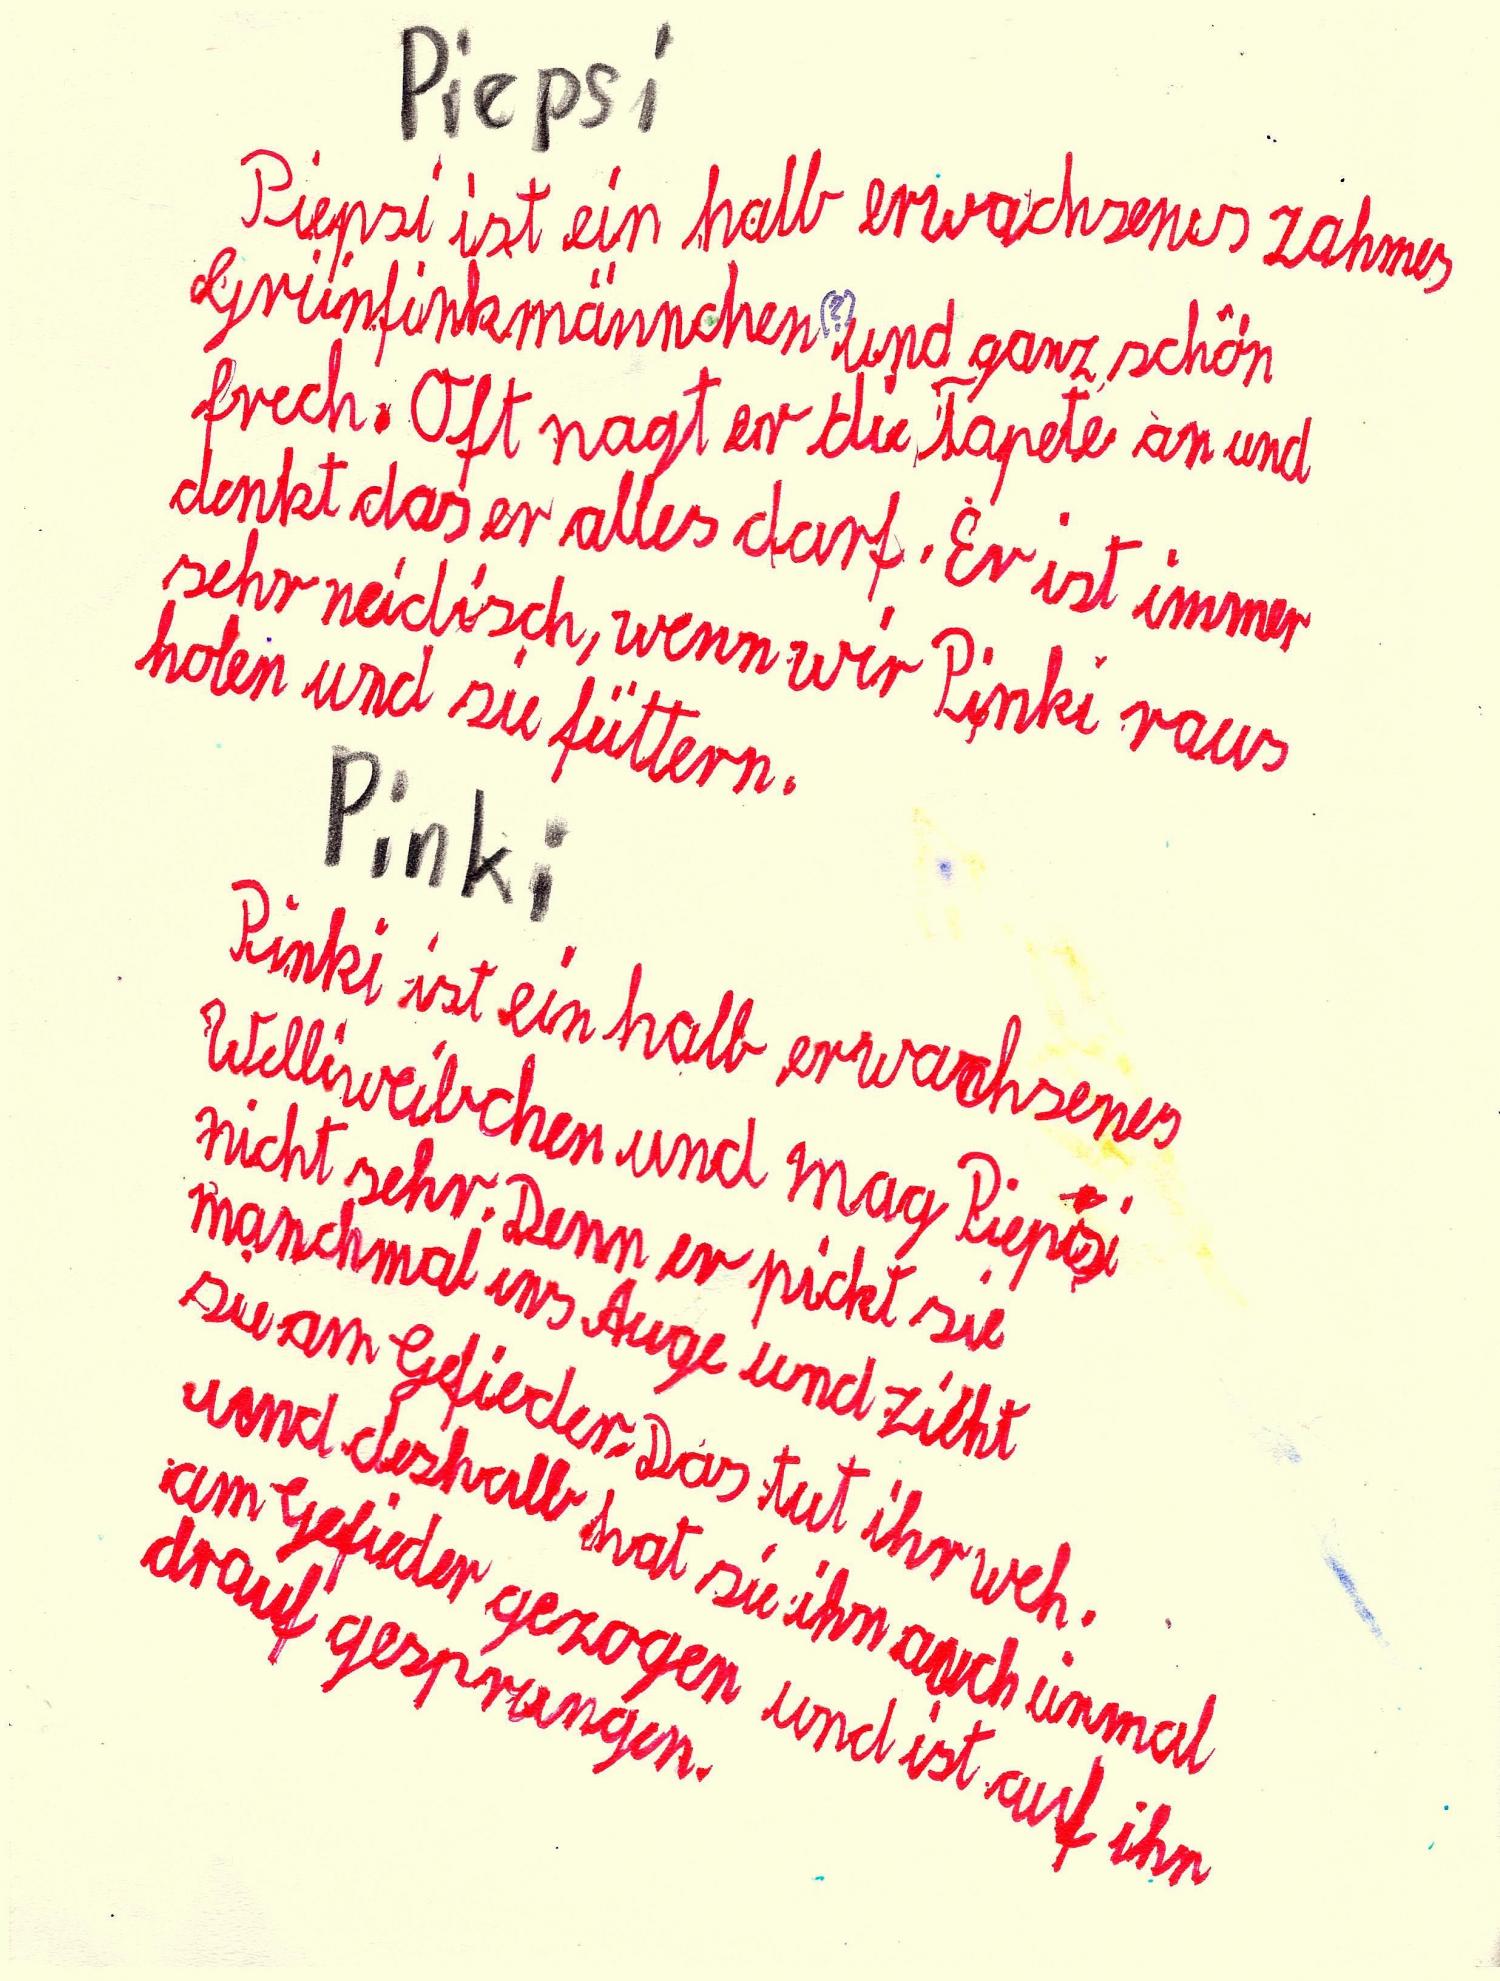 Piepsi
Piepsi ist ein halb erwachsenes zahmes
Grünfinkmännchen (?) und ganz schön
frech. Oft nagt er die Tapete an und
denkt das er alles darf. Er ist immer
sehr neidisch, wenn wir Pinki raus
holen und sie füttern.
Pinki
Pinki ist ein halb erwachsenes
Welliweibchen und mag Piepsi
nicht sehr. Denn er pickt sie
manchmal ins Auge und zieht
sie am Gefieder. Das tut ihr weh.
und deshalb hat sie ihn auch einmal
am Gefieder gezogen und ist auf ihn
drauf gesprungen.